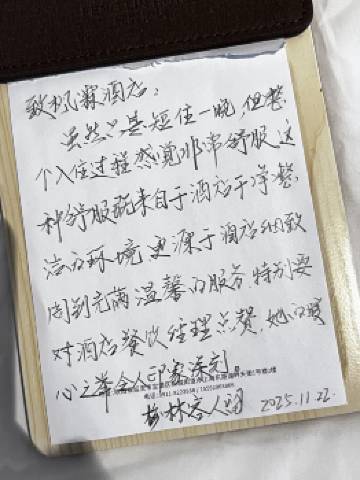 致枫霖酒店：
虽然只是短住一晚，但整
个入住过程感觉非常舒服，这
种舒服既来自于酒店干净整
洁的环境，更源于酒店细致
周到充满温馨的服务，特别要
对酒店餐饮经理点赞，她的暖
心之举令人印象深刻。
客人 2025.11.22.